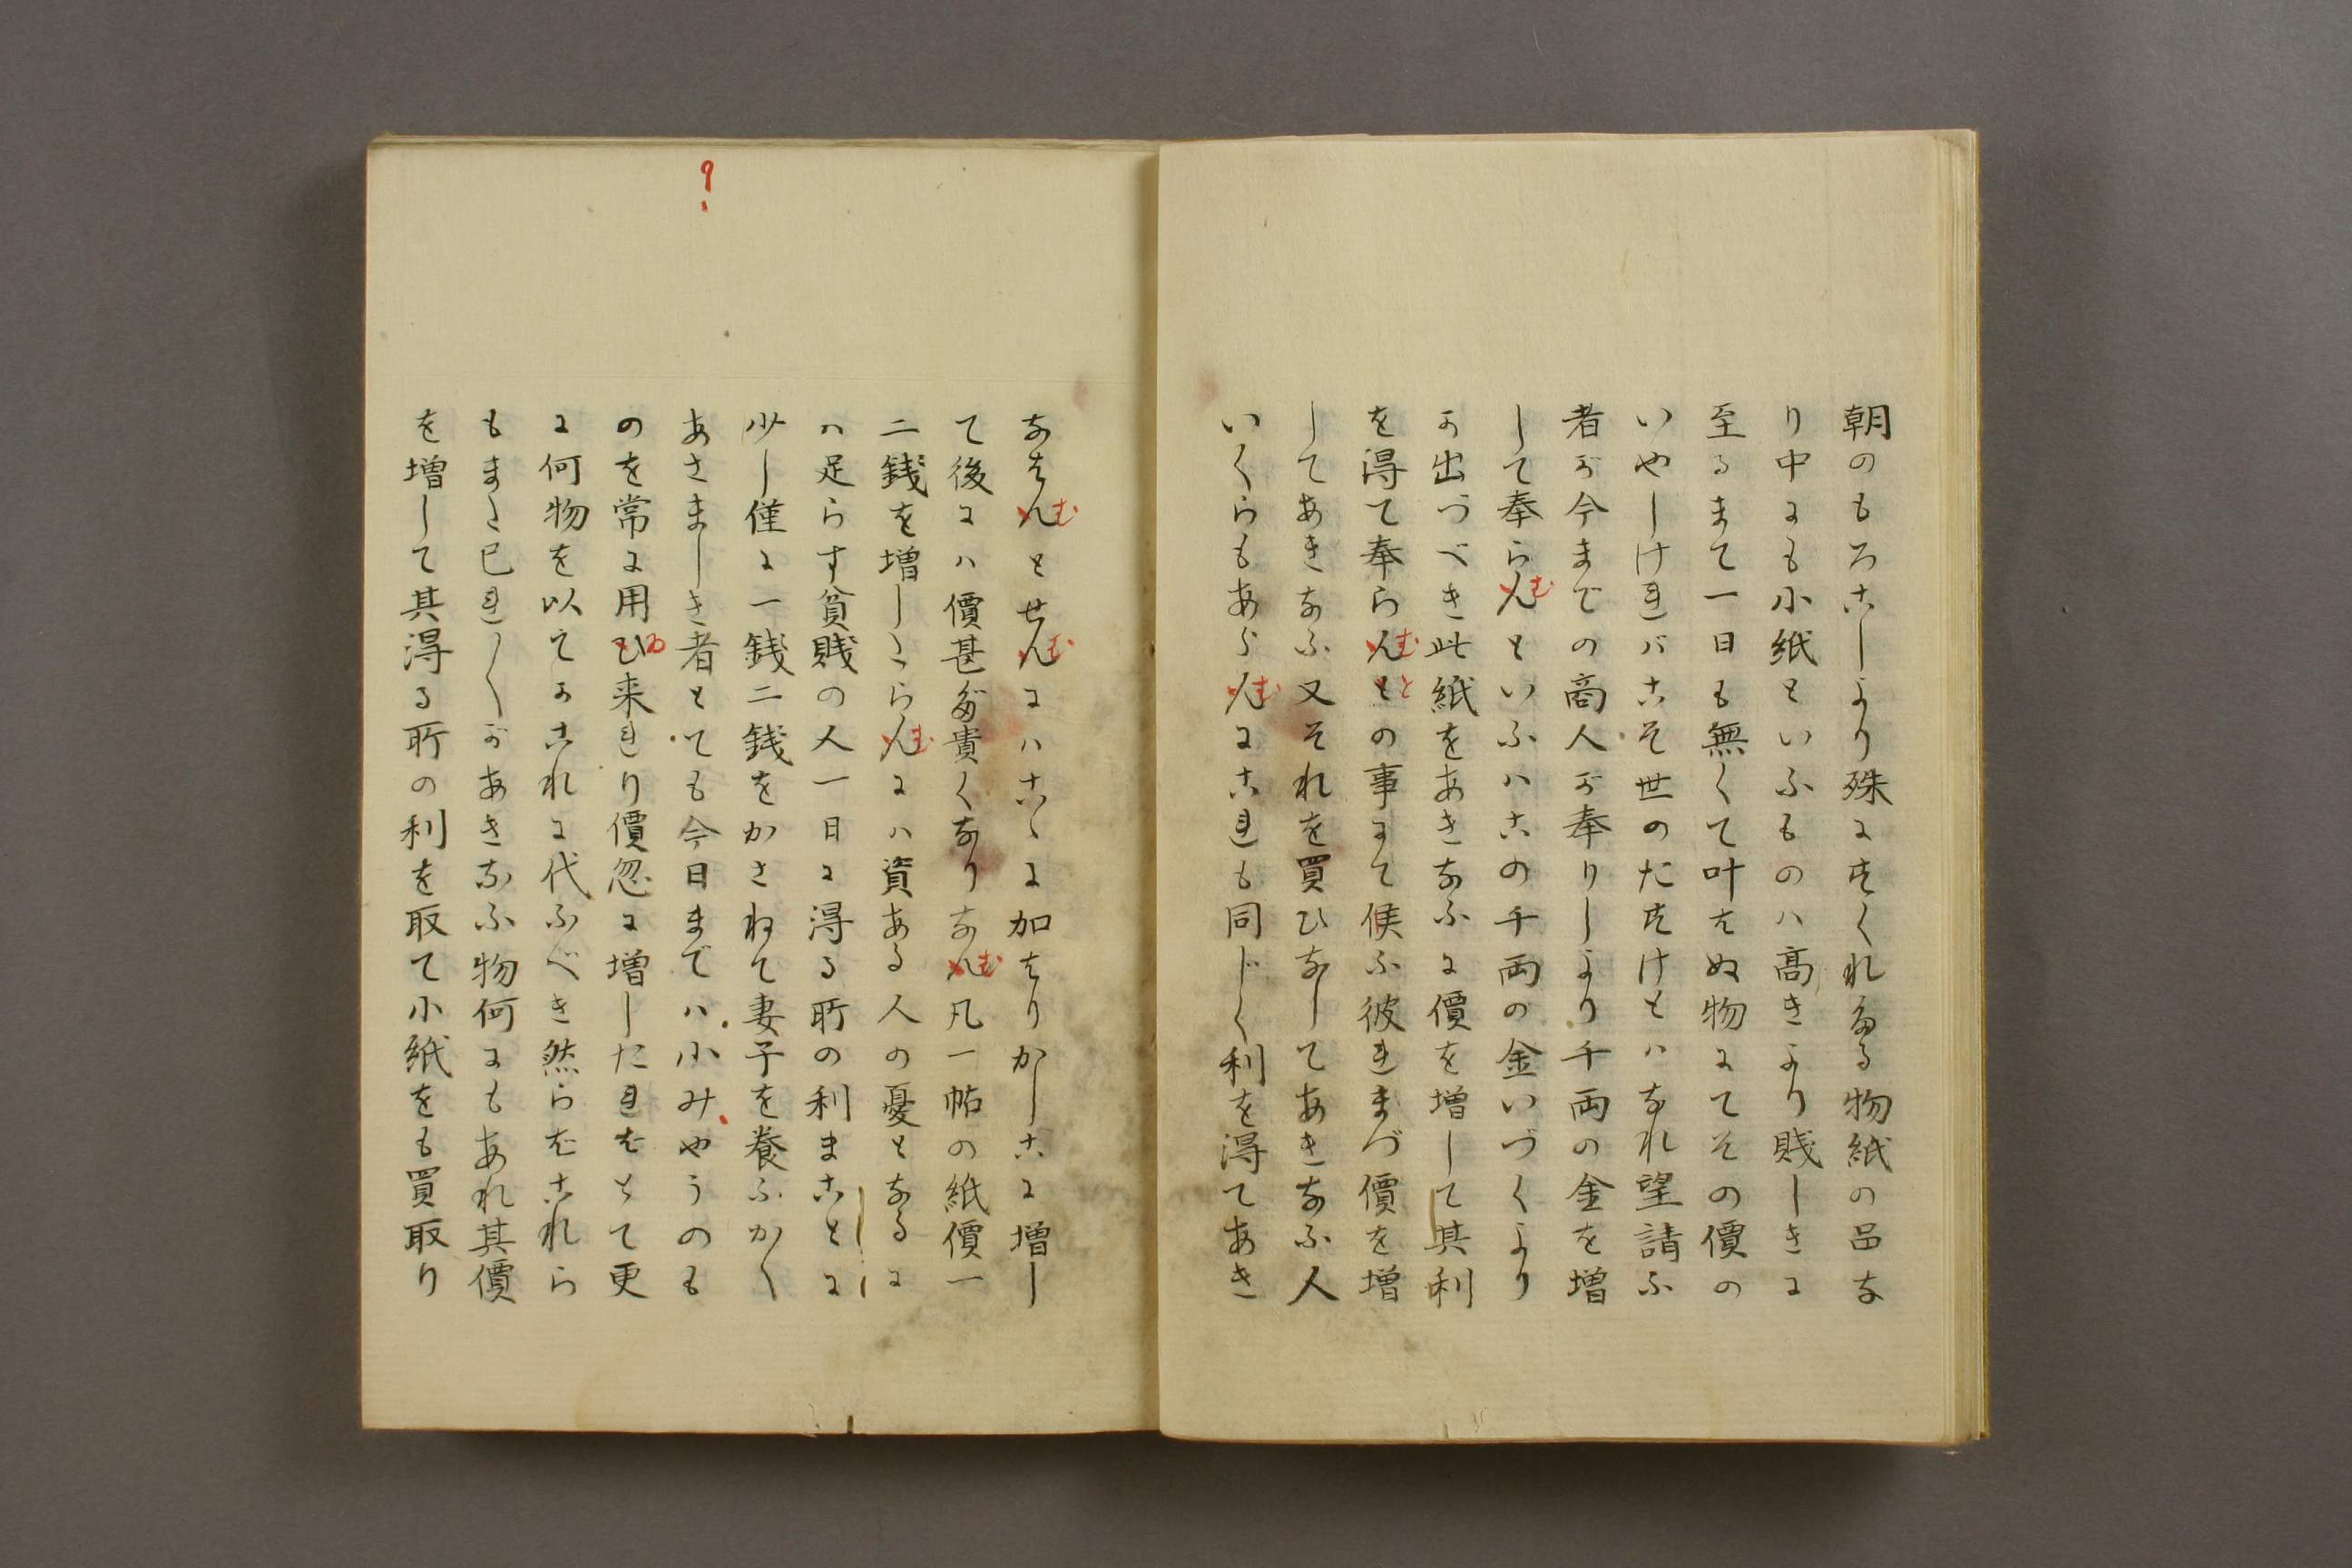 朝のもろこしより殊にすくれたる物紙の品な
り中にも小紙といふものハ高きより賎しきに
至るまて一日も無くて叶はぬ物にてその價の
いやしけれバこそ世のたすけともハなれ望請ふ
者が今までの商人が奉りしより千両の金を増
して奉らんむといふハこの千両の金いづくより
か出づべき此紙をあきなふに價を増して其利
を得て奉らんむととの事にて候ふ彼れまづ價を増
してあきなふ又それを買ひなしてあきなふ人
いくらもあらんむにこれも同じく利を得てあき
なはんむとせんむにハこゝに加はりかしこに増し
て後にハ價甚だ貴くなりなんむ凡一帖の紙價一
二銭を増したらんむにハ資ある人の憂となるに
ハ足らす貧賎の人一日に得る所の利まことに
少し僅に一銭二銭をかさねて妻子を養ふかく
?
あさましき者とても今日までハ小みやうのも
のを常に用ひゐ来れり價忽に増したればとて更
に何物を以てかこれに代ふべき然らばこれら
もまた己れ〳〵があきなふ物何にもあれ其價
を増して其得る所の利を取て小紙をも買取り